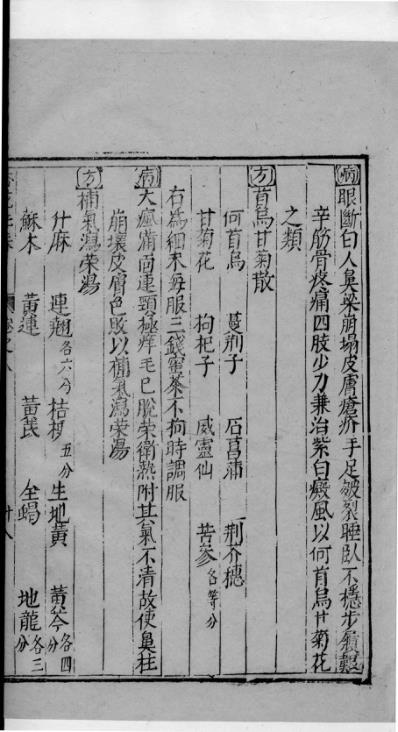 病眼斷白人鼻梁崩塌皮膚瘡疥手足皴裂睡臥不穩步履艱
辛筋骨疼痛四肢少力兼治紫白癜風以何首烏甘菊花
之類
方首烏甘菊散
何首烏 蔓荊子 石菖蒲 荊芥穗
甘菊花 枸杞子 威靈仙 苦參各等分
右爲細末每服三錢蜜茶不拘時調服
病大風滿面連頸極痒毛已脫榮衛熱附其氣不清故使鼻柱
崩壞皮膚色敗以補氣瀉榮湯
方補氣瀉榮湯
什麻 連翹各六分 桔梗五分 生地黃 黃芩各四分
蘇木 黃連 黃芪 全蝎 地龍各三分
卷之八 十八